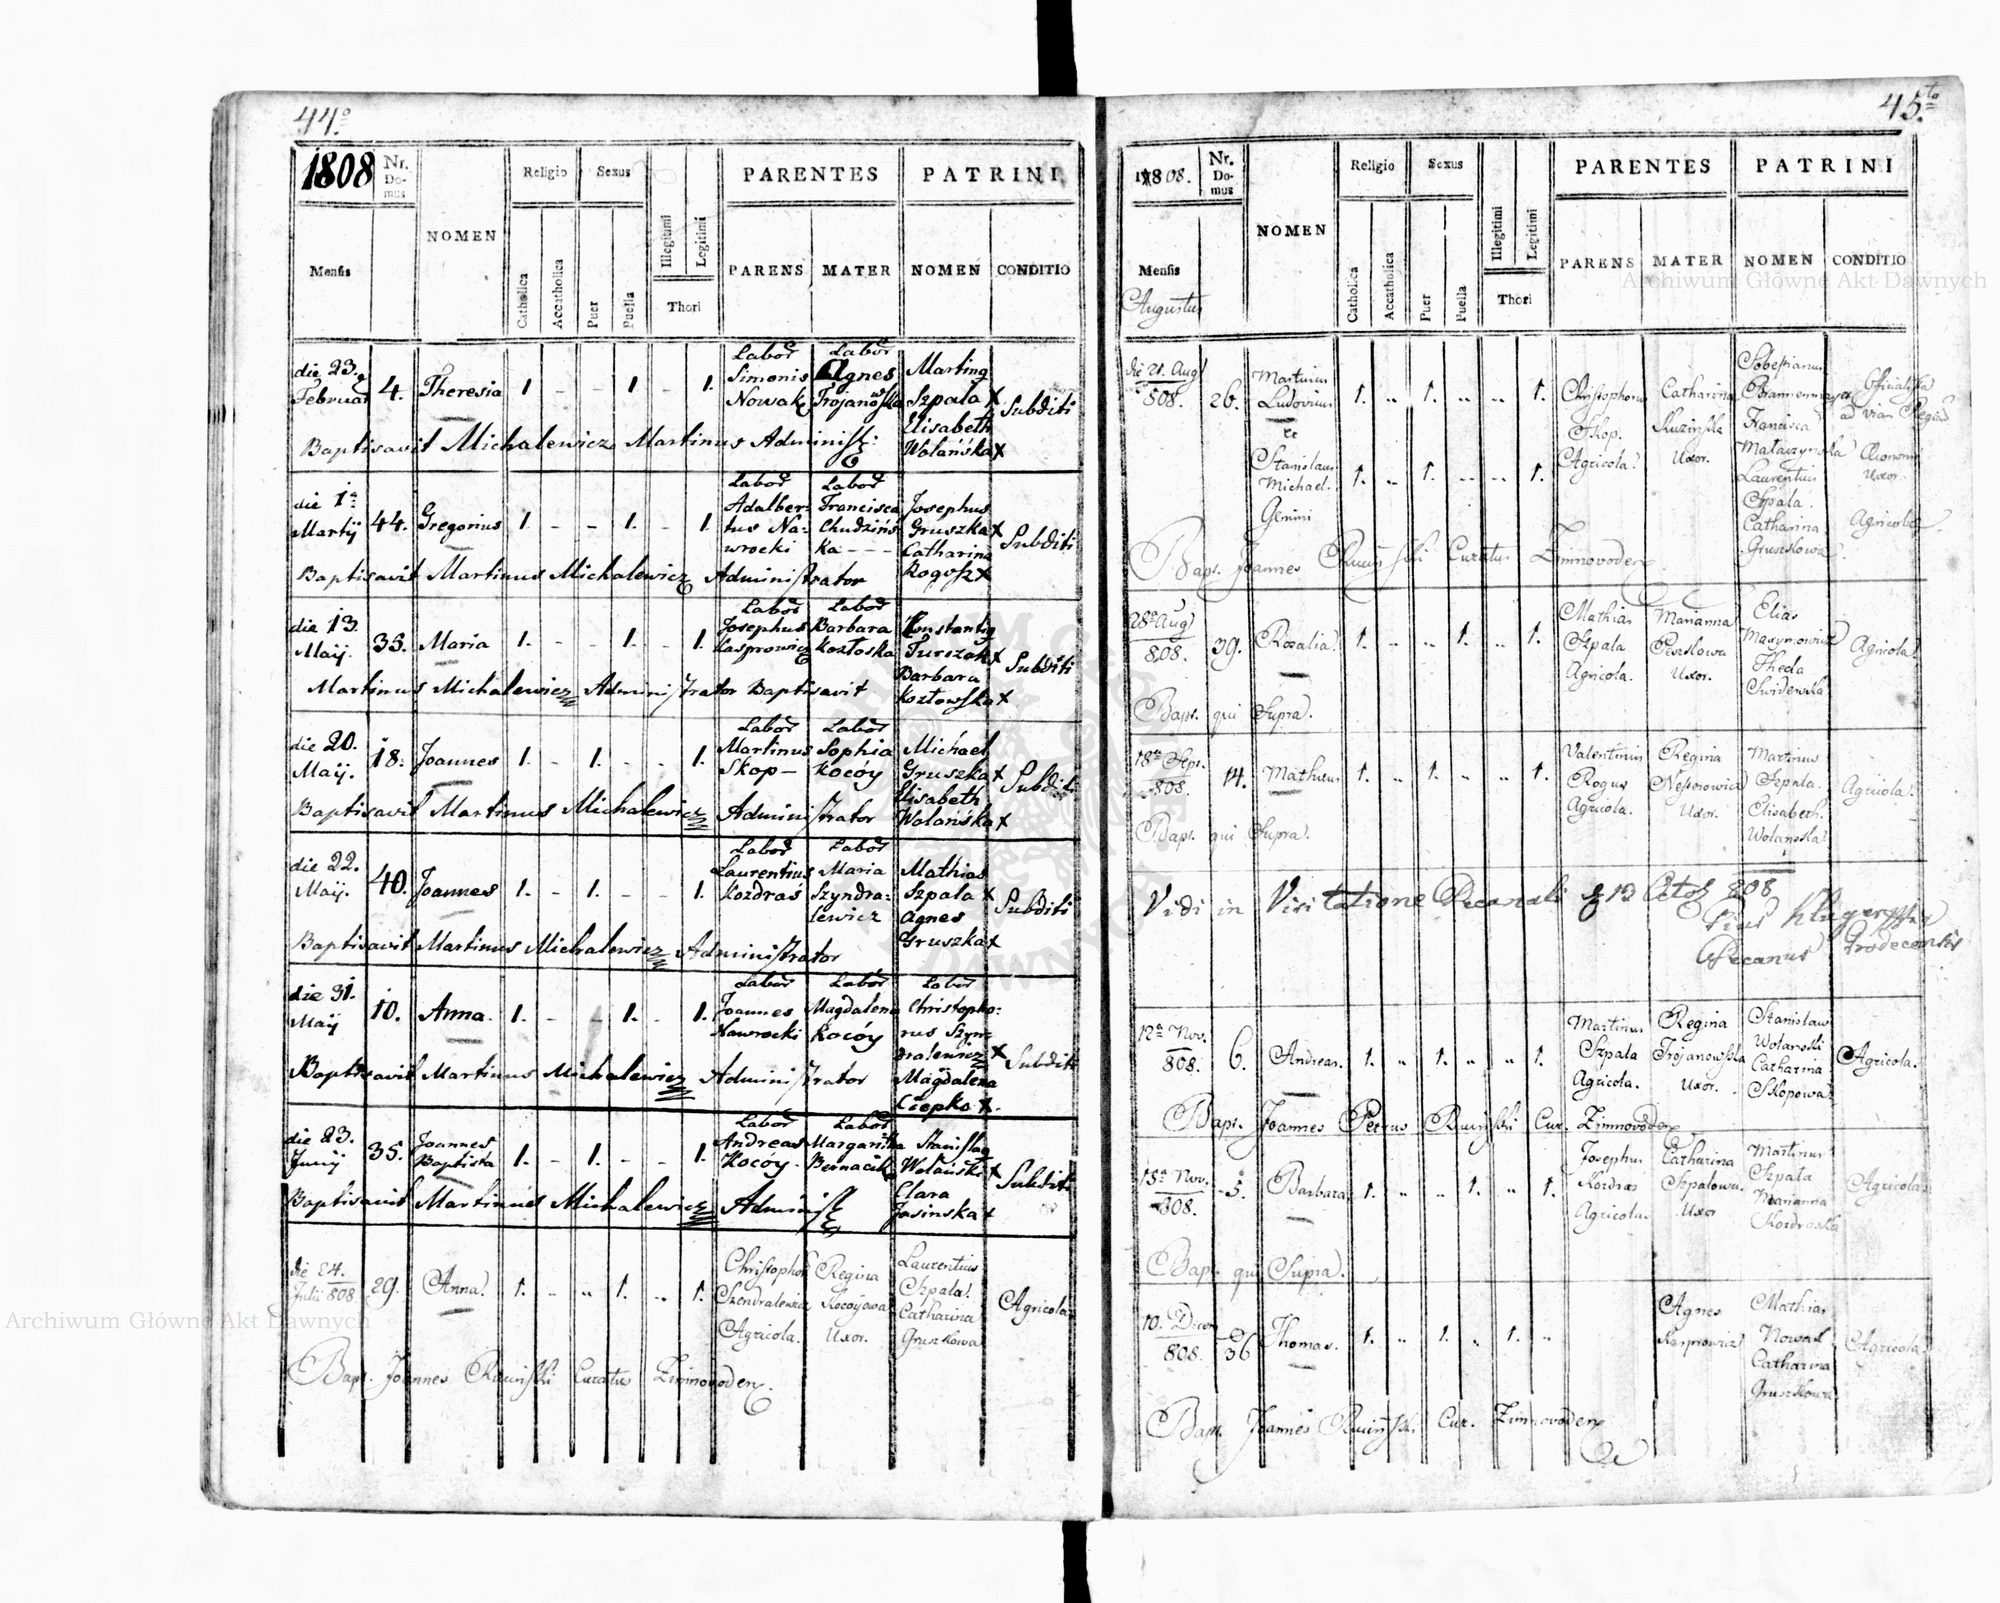 44º
1808
Nr. Domus
NOMEN
Religio
Sexus
PARENTES
PATRINI
Mensis
Catholica
Accatholica
Puer
Puella
Illegitimi
Legitimi
Thori
PARENS
MATER
NOMEN
CONDITIO
die 23. Februar 4. Theresia 1 - - 1. - 1.
Labor Simonis Nowak
Labor Agnes Trojanowska
Martinq Szpala X
Elisabeth Wolańska X
Subditi
Baptisavit Michalewicz Martinus Administ:
die 1ª Martij 44. Gregorius 1. - - 1. - 1.
Labor Adalbertus Nawrocki
Labor Francisca Chudzińska - - -
Josephus Gruszka X
Catharina Rogosz X
Subditi
Baptisavit Martinus Michalewicz Administrator
die 13. Maij. 33. Maria 1. - - 1. - 1.
Labor Josephus Kasprowicz
Labor Barbara Kozłoska
Konstantiq Turczak X
Barbara Kozłowska X
Subditi
Martinus Michalewicz Administrator Baptisavit
die 20. Maij. 18. Joannes 1. - 1. - - 1.
Labor Martinus Skop -
Labor Sophia Kocóy
Michael Gruszka X
Elisabeth Wolańska X
Subditi
Baptisavit Martinus Michalewicz Administrator
die 22. Maij. 40. Joannes 1. - 1. - - 1.
Labor Laurentius Kozdraś
Labor Maria Szyndralewicz
Mathias Szpala X
Agnes Gruszka X
Subditi
Baptisavit Martinus Michalewicz Administrator
die 31. Maij 10. Anna. 1. - - 1. - 1.
Labor Joannes Nawrocki
Labor Magdalena Kocóy
Labor Christophorus Szyndralewicz X
Magdalena Czopko X.
Subditi
Baptisavit Martinus Michalewicz Administrator
die 23. Junij 35. Joannes Baptista 1. - 1. - - 1.
Labor Andreas Kocóy -
Labor Margaritha Bernacik
Stanislaq Wolański X
Clara Jasinska +
Subditi
Baptisavit Martinus Michalewicz Administ
die 24. Julii 808 29. Anna. 1. .. .. 1. .. 1.
Christophor Szendralewicz Agricola.
Regina Kocoyowa Uxor.
Laurentius Szpala.
Catharina Gruszkowa
Agricola.
Bapt. Joannes Curatus Zimnovoden.
45.to
1808.
Nr. Domus
NOMEN
Religio
Sexus
PARENTES
PATRINI
Mensis
Augustus
Catholica
Accatholica
Puer
Puella
Illegitimi
Legitimi
Thori
PARENS
MATER
NOMEN
CONDITIO
die 21. Aug 808. 26. Martinus Ludovicus 1. .. 1. .. .. 1.
et
Stanislaus Michael. 1. 1. .. .. 1.
Gemini
Christophorus Skop. Agricola.
Catharina Uxor.
Francisca
Laurentius Szpala.
Catharina Gruszkowa.
ad viam Regia
Uxor.
Agricolae
Bapt. Joannes Curatus Zimnovoden.
28ª Aug 808. 39. Rosalia. 1. .. .. 1. .. 1.
Mathias Szpala Agricola.
Marianna Uxor.
Elias
Theda
Agricola.
Bapt. qui Supra.
18ª Sept. 808. 14. Matheus 1. .. 1. .. .. 1.
Valentinus Rogus Agricola.
Regina Uxor.
Martinus Szpala.
Elisabeth. Wolanska
Agricola.
Bapt. qui Supra.
Vidi in Visitatione Decanali 808
Decanus Grodecensis
12ª Nov. 808. 6. Andreas. 1. .. 1. .. .. 1.
Martinus Szpala Agricola.
Regina Trojanowska Uxor.
Stanislaw Wolanski
Catharina Skopowa
Agricola.
Bapt. Joannes Petrus Cur. Zimnovoden
15ª Nov. 808. 5. Barbara. 1. .. .. 1. .. 1.
Josephus Kozdras Agricola.
Catharina Szpalowa. Uxor
Martinus Szpala
Marianna Kozdraska
Agricola.
Bapt. qui Supra.
10. Decem 808. 36 Thomas. 1. .. 1. .. 1. ..
Agnes Kasprowicz
Mathias Nowak
Catharina Gruszkowa
Agricola.
Bapt. Joannes Cur. Zimnovoden
Archiwum Główne Akt Dawnych
Archiwum Główne Akt Dawnych